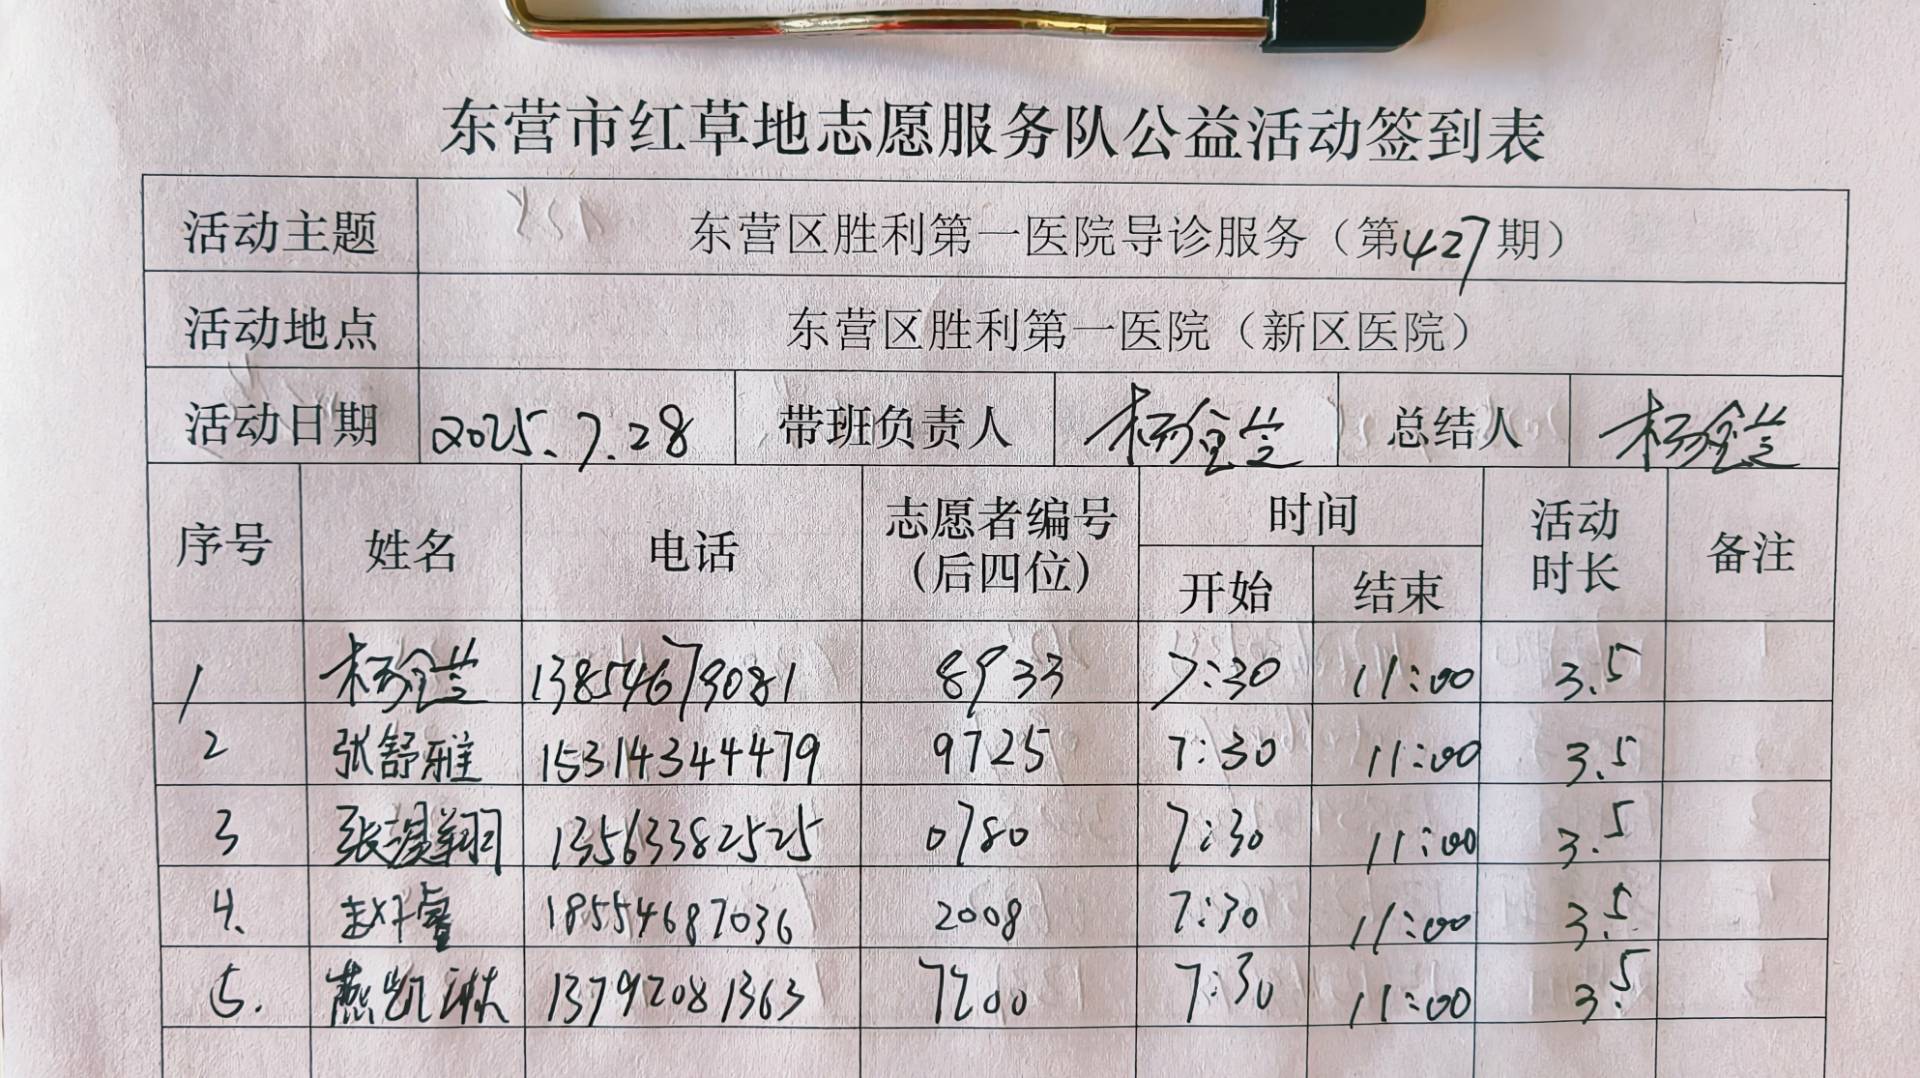 东营市红草地志愿服务队公益活动签到表
活动主题 东营区胜利第一医院导诊服务（第427期）
活动地点 东营区胜利第一医院（新区医院）
活动日期 2025.7.28 带班负责人 杨 总结人 杨
序号 姓名 电话 志愿者编号（后四位） 时间 开始 结束 活动时长 备注
1 杨 13854679081 8933 7:30 11:00 3.5
2 张舒雅 15314344479 9725 7:30 11:00 3.5
3 张淏翔 13563382525 0780 7:30 11:00 3.5
4. 赵仟睿 18554687036 2008 7:30 11:00 3.5
5. 燕凯琳 13792081363 7200 7:30 11:00 3.5